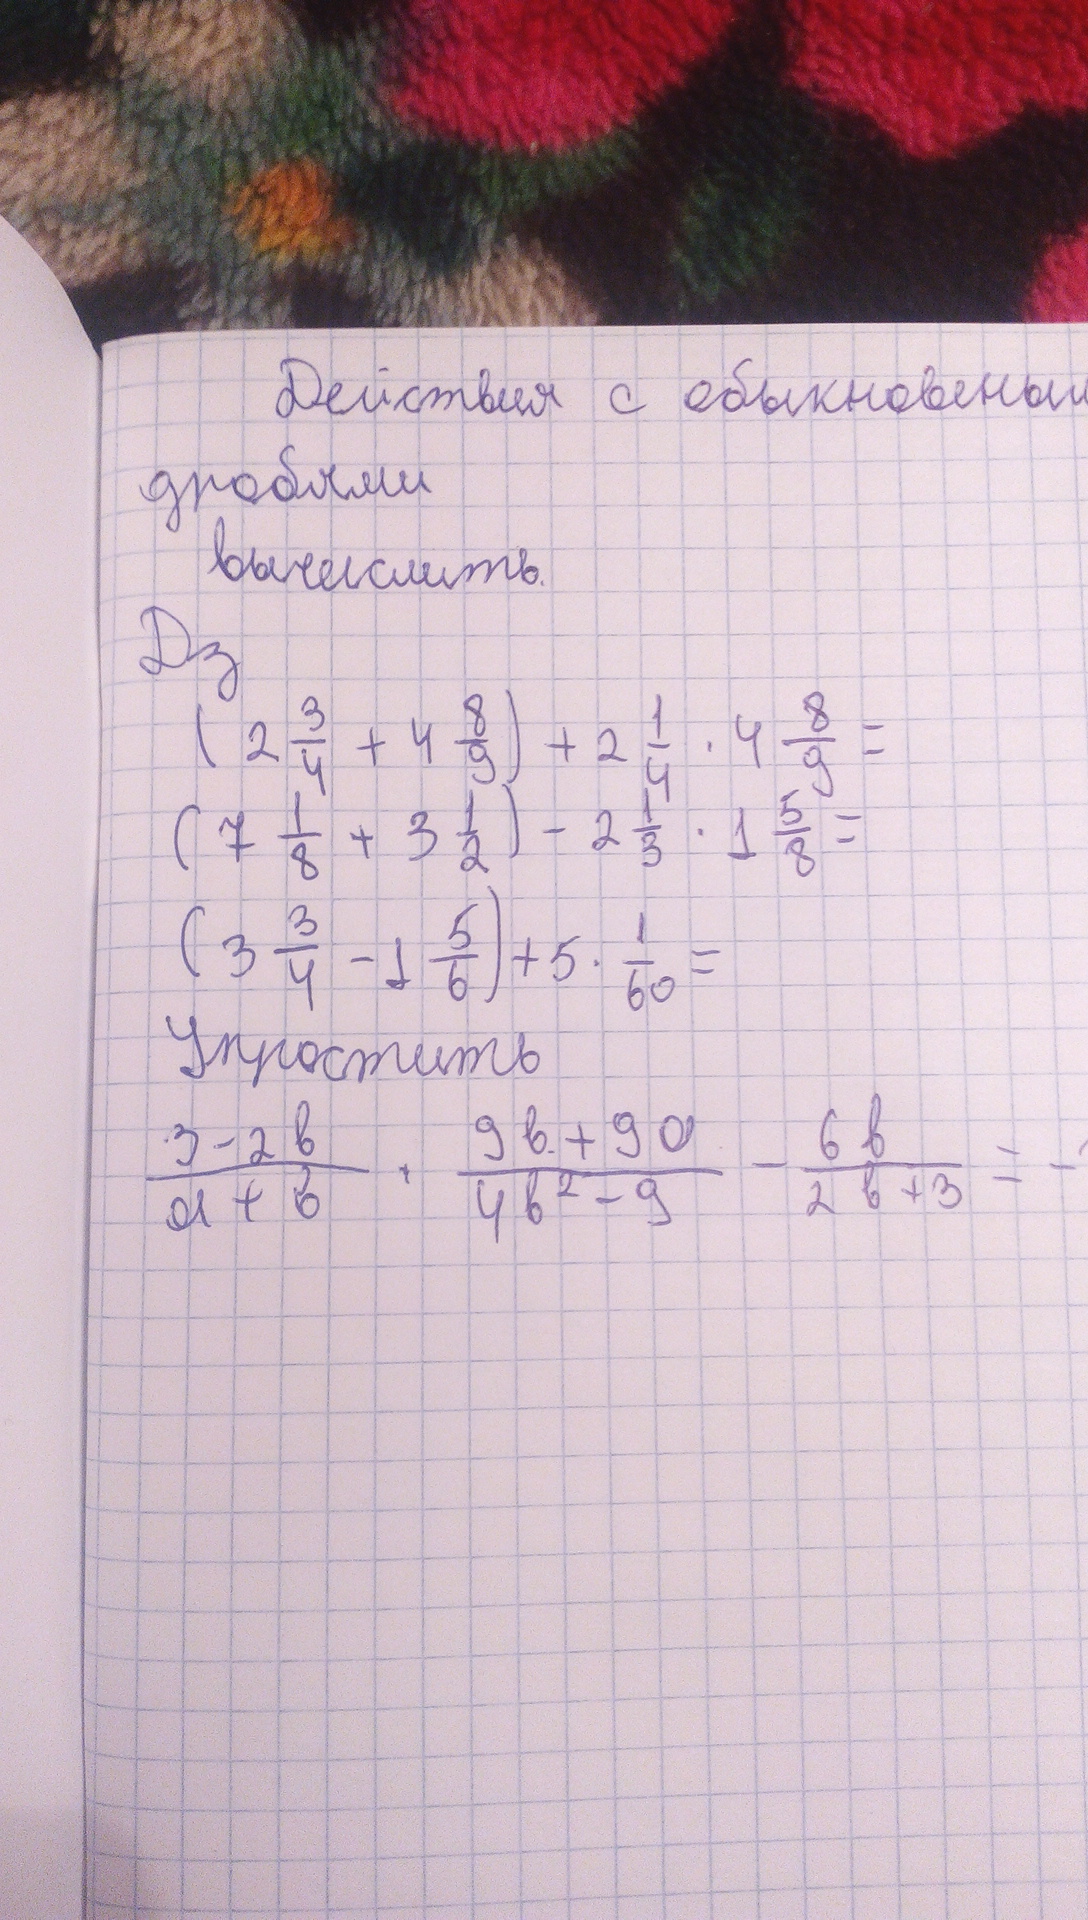 Действия с обыкновеным
дробями
вычислить.
Дз
(2 3/4 + 4 8/9) + 2 1/4 · 4 8/9 =
(7 1/8 + 3 1/2) - 2 1/3 · 1 5/8 =
(3 3/4 - 1 5/6) + 5 · 1/60 =
Упростить
3-2b/a+b · 9b+9a/4b²-9 - 6b/2b+3 = -